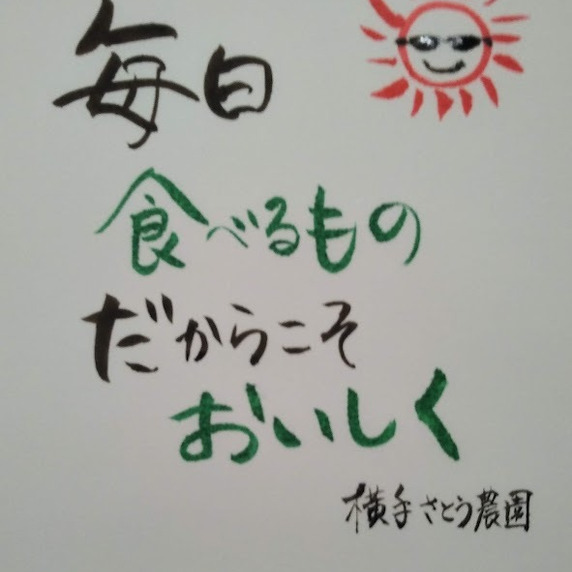 毎日
食べるもの
だからこそ
おいしく
横手さとう農園